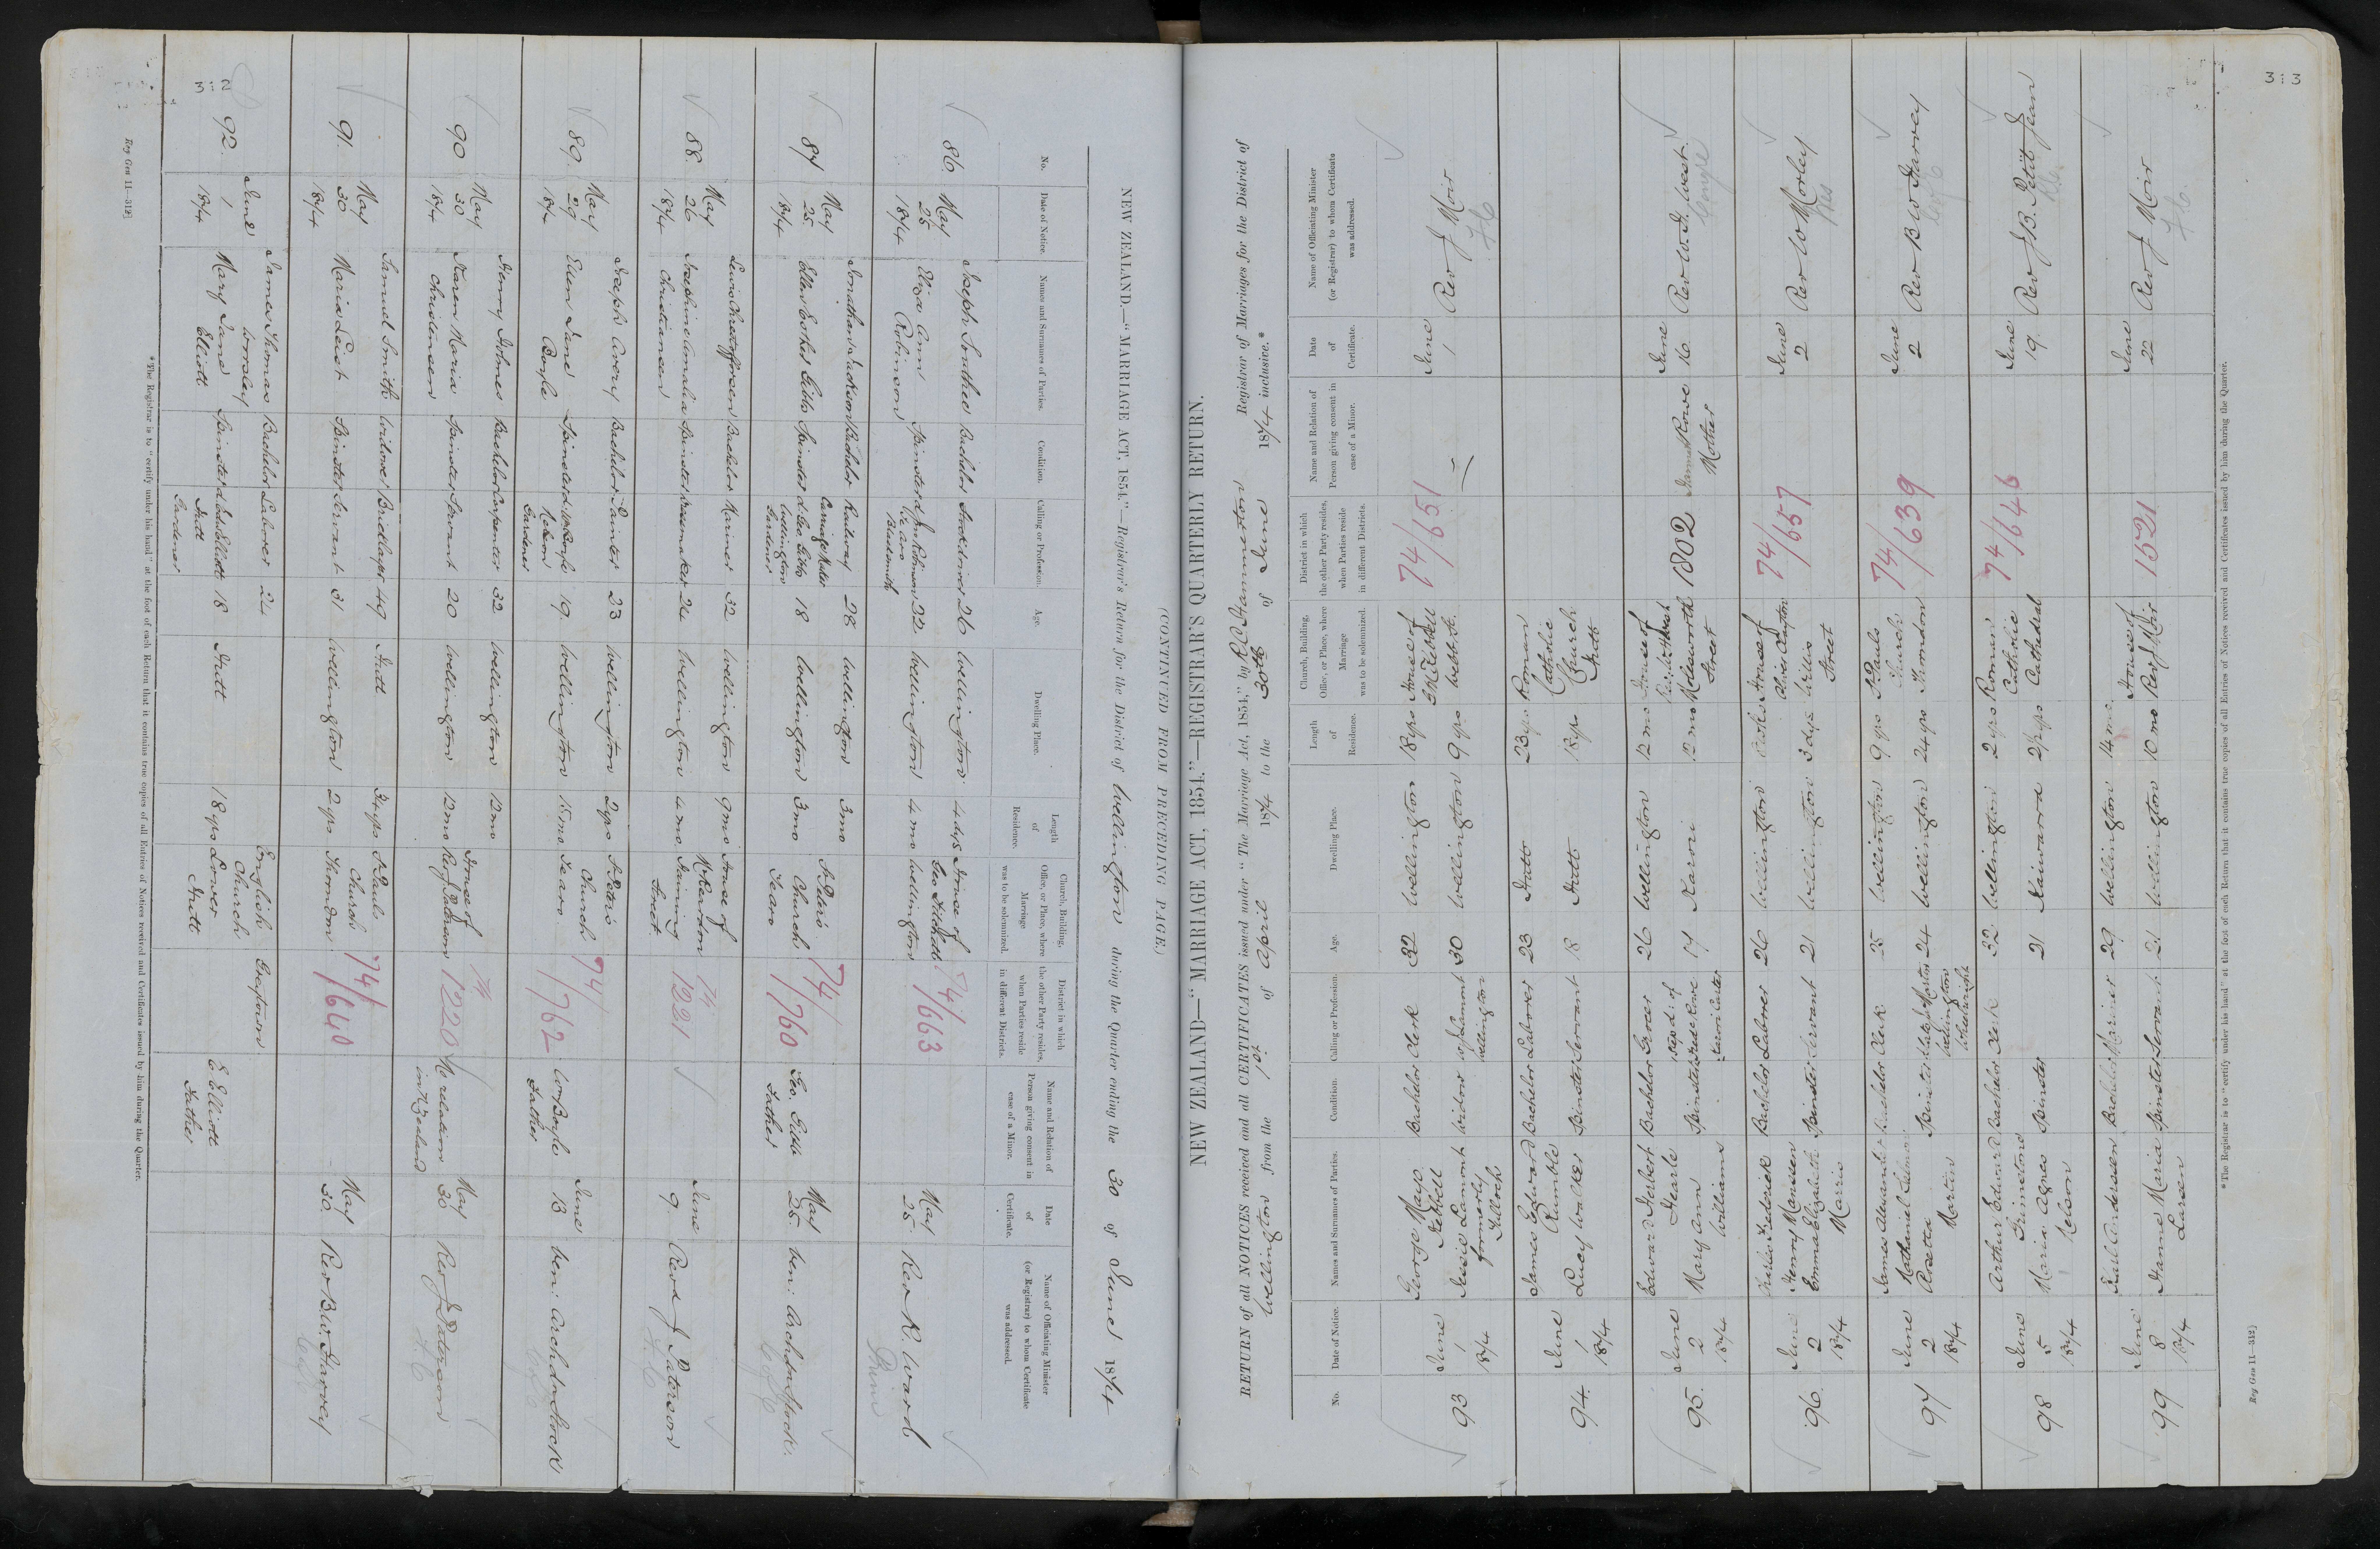 NEW ZEALAND.—"MARRIAGE ACT, 1854."—Registrar's Return for the District of Wellington during the Quarter ending the 30 of June 1874
(CONTINUED FROM PRECEDING PAGE.)
No. Date of Notice. Names and Surnames of Parties. Condition. Calling or Profession. Age. Dwelling Place. Length of Residence. Church, Building, Office, or Place, where Marriage was to be solemnized. District in which the other Party resides, when Parties reside in different Districts. Name and Relation of Person giving consent in case of a Minor. Date of Certificate. Name of Officiating Minister (or Registrar) to whom Certificate was addressed.
86 May 25 1874
Joseph Bachelor 26 Wellington 4 dys House of Geo Wellington 74/663 May 25 Rev R. Ward
Eliza Ann Robinson Spinster d Jno Robinson Te aro Blacksmith 22 Wellington 4 mo
Prim
87 May 25 1874
Jonathan Jackson Bachelor Railway Carriage 28 Wellington 3 mo St Peters Church Te aro 74/760 Geo. Gibbs Father May 25 Ven: Archdn Stock
Ellen Gibbs Spinster d Geo Gibbs Wellington Gardener 18 Wellington 3 mo
C of E
88 May 26 1874
Bachelor Mariner 32 Wellington 9 mo House of Manning Street 74 1221 June 9 Rev J Paterson
Josephine Christiansen Spinster Dressmaker 24 Wellington 4 mo
89 May 29 1874
Joseph Avery Bachelor Painter 23 Wellington 2 yrs St Peters Church Te aro 74/762 Wm Boyle Father June 13 Ven: Archdn Stock
Ellen Jane Boyle Spinster d Wm Boyle Gardener 19 Wellington 15 mo
90 May 30 1874
Henry Holmes Bachelor Carpenter 32 Wellington 12 mo House of Rev J Paterson 74 1220 No relation in N Zealand May 30 Rev J Paterson
Karen Maria Christinesen Spinster Servant 20 Wellington 12 mo
91 May 30 1874
Samuel Smith Widower Bricklayer 49 Hutt 34 yrs St Pauls Church Thorndon 74/640 May 30 Rev B. W. Harvey
Maria Leist Spinster Servant 31 Wellington 2 yrs
92 June 1 1874
James Thomas Worsley Bachelor Laborer 24 English Church Lower Hutt Greytown E Elliott Father
Mary Jane Elliott Spinster Elliott Hutt Gardener 18 Hutt 18 yrs
*The Registrar is to "certify under his hand" at the foot of each Return that it contains true copies of all Entries of Notices received and Certificates issued by him during the Quarter.
Reg Gen 11—312]
312
NEW ZEALAND.—"MARRIAGE ACT, 1854."—REGISTRAR'S QUARTERLY RETURN.
RETURN of all NOTICES received and all CERTIFICATES issued under "The Marriage Act, 1854," by R C Hammerton Registrar of Marriages for the District of
Wellington from the 1st of April 1874 to the 30th of June 1874 inclusive.*
No. Date of Notice. Names and Surnames of Parties. Condition. Calling or Profession. Age. Dwelling Place. Length of Residence. Church, Building, Office, or Place, where Marriage was to be solemnized. District in which the other Party resides, when Parties reside in different Districts. Name and Relation of Person giving consent in case of a Minor. Date of Certificate. Name of Officiating Minister (or Registrar) to whom Certificate was addressed.
93 June 1 1874
George Mayo Bachelor Clerk 32 Wellington 18 yrs House of Webb St. 74/651 June 1 Rev J Moir
Jessie Lamont formerly Tulloch Widow W Lamont Wellington 30 Wellington 9 yrs
94 June 1 1874
James Edward Rumble Bachelor Laborer 23 Hutt 23 yrs Roman Catholic Church Hutt
Lucy Walker Spinster Servant 18 Hutt 18 yrs
95. June 2 1874
Edward Herbert Hearle Bachelor Grocer 26 Wellington 12 mo House of Molesworth Street 1802 Rowe Mother June 16 Rev W. H. West
Mary Ann Williams Spinster Step d: of Rowe Karori Carter 17 Karori 12 mo
Congl
96. June 2 1874
Charles Frederick Henry Mansen Bachelor Laborer 26 Wellington House of Willis Street 74/657 June 2 Rev W Morley
Emma Elizabeth Harris Spinster Servant 21 Wellington 3 dys
Wes
97 June 2 1874
James Alexander Nathaniel Bachelor Clerk 25 Wellington 9 yrs St Pauls Church Thorndon 74/639 June 2 Rev B W Harvey
Rosetta Martin Spinster Martin Wellington Wheelwright 24 Wellington 24 yrs
98 June 5 1874
Arthur Edward Grimstone Bachelor Clerk 32 Wellington 2 yrs Roman Catholic Cathedral 74/646 June 19 Rev J B. Petit Jean
Maria Agnes Nelson Spinster 21 Kaiwarra 21 yrs
99 June 8 1874
Paul Andersen Bachelor Mariner 29 Wellington 14 mo House of Rev J Moir 1521 June 22 Rev J Moir
Hanne Maria Larsen Spinster Servant 21 Wellington 10 mo
*The Registrar is to "certify under his hand" at the foot of each Return that it contains true copies of all Entries of Notices received and Certificates issued by him during the Quarter.
Reg Gen 11—312]
313